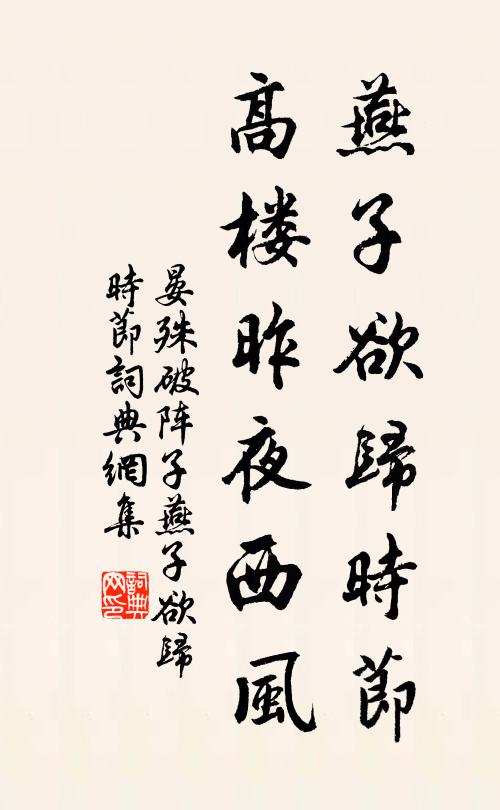 燕子欲歸時節
高楼昨夜西風
晏殊破阵子燕子欲歸
時節詞典網集
詞典网印